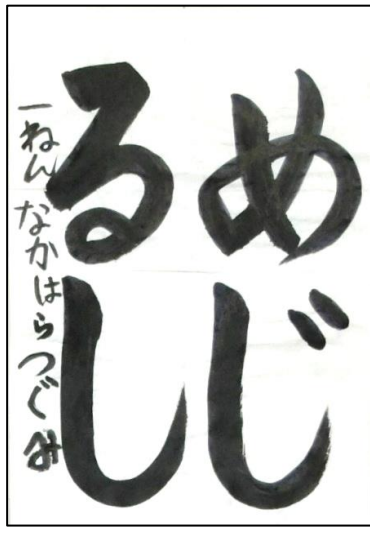 めじ
るし
一ねん なかはらつぐみ